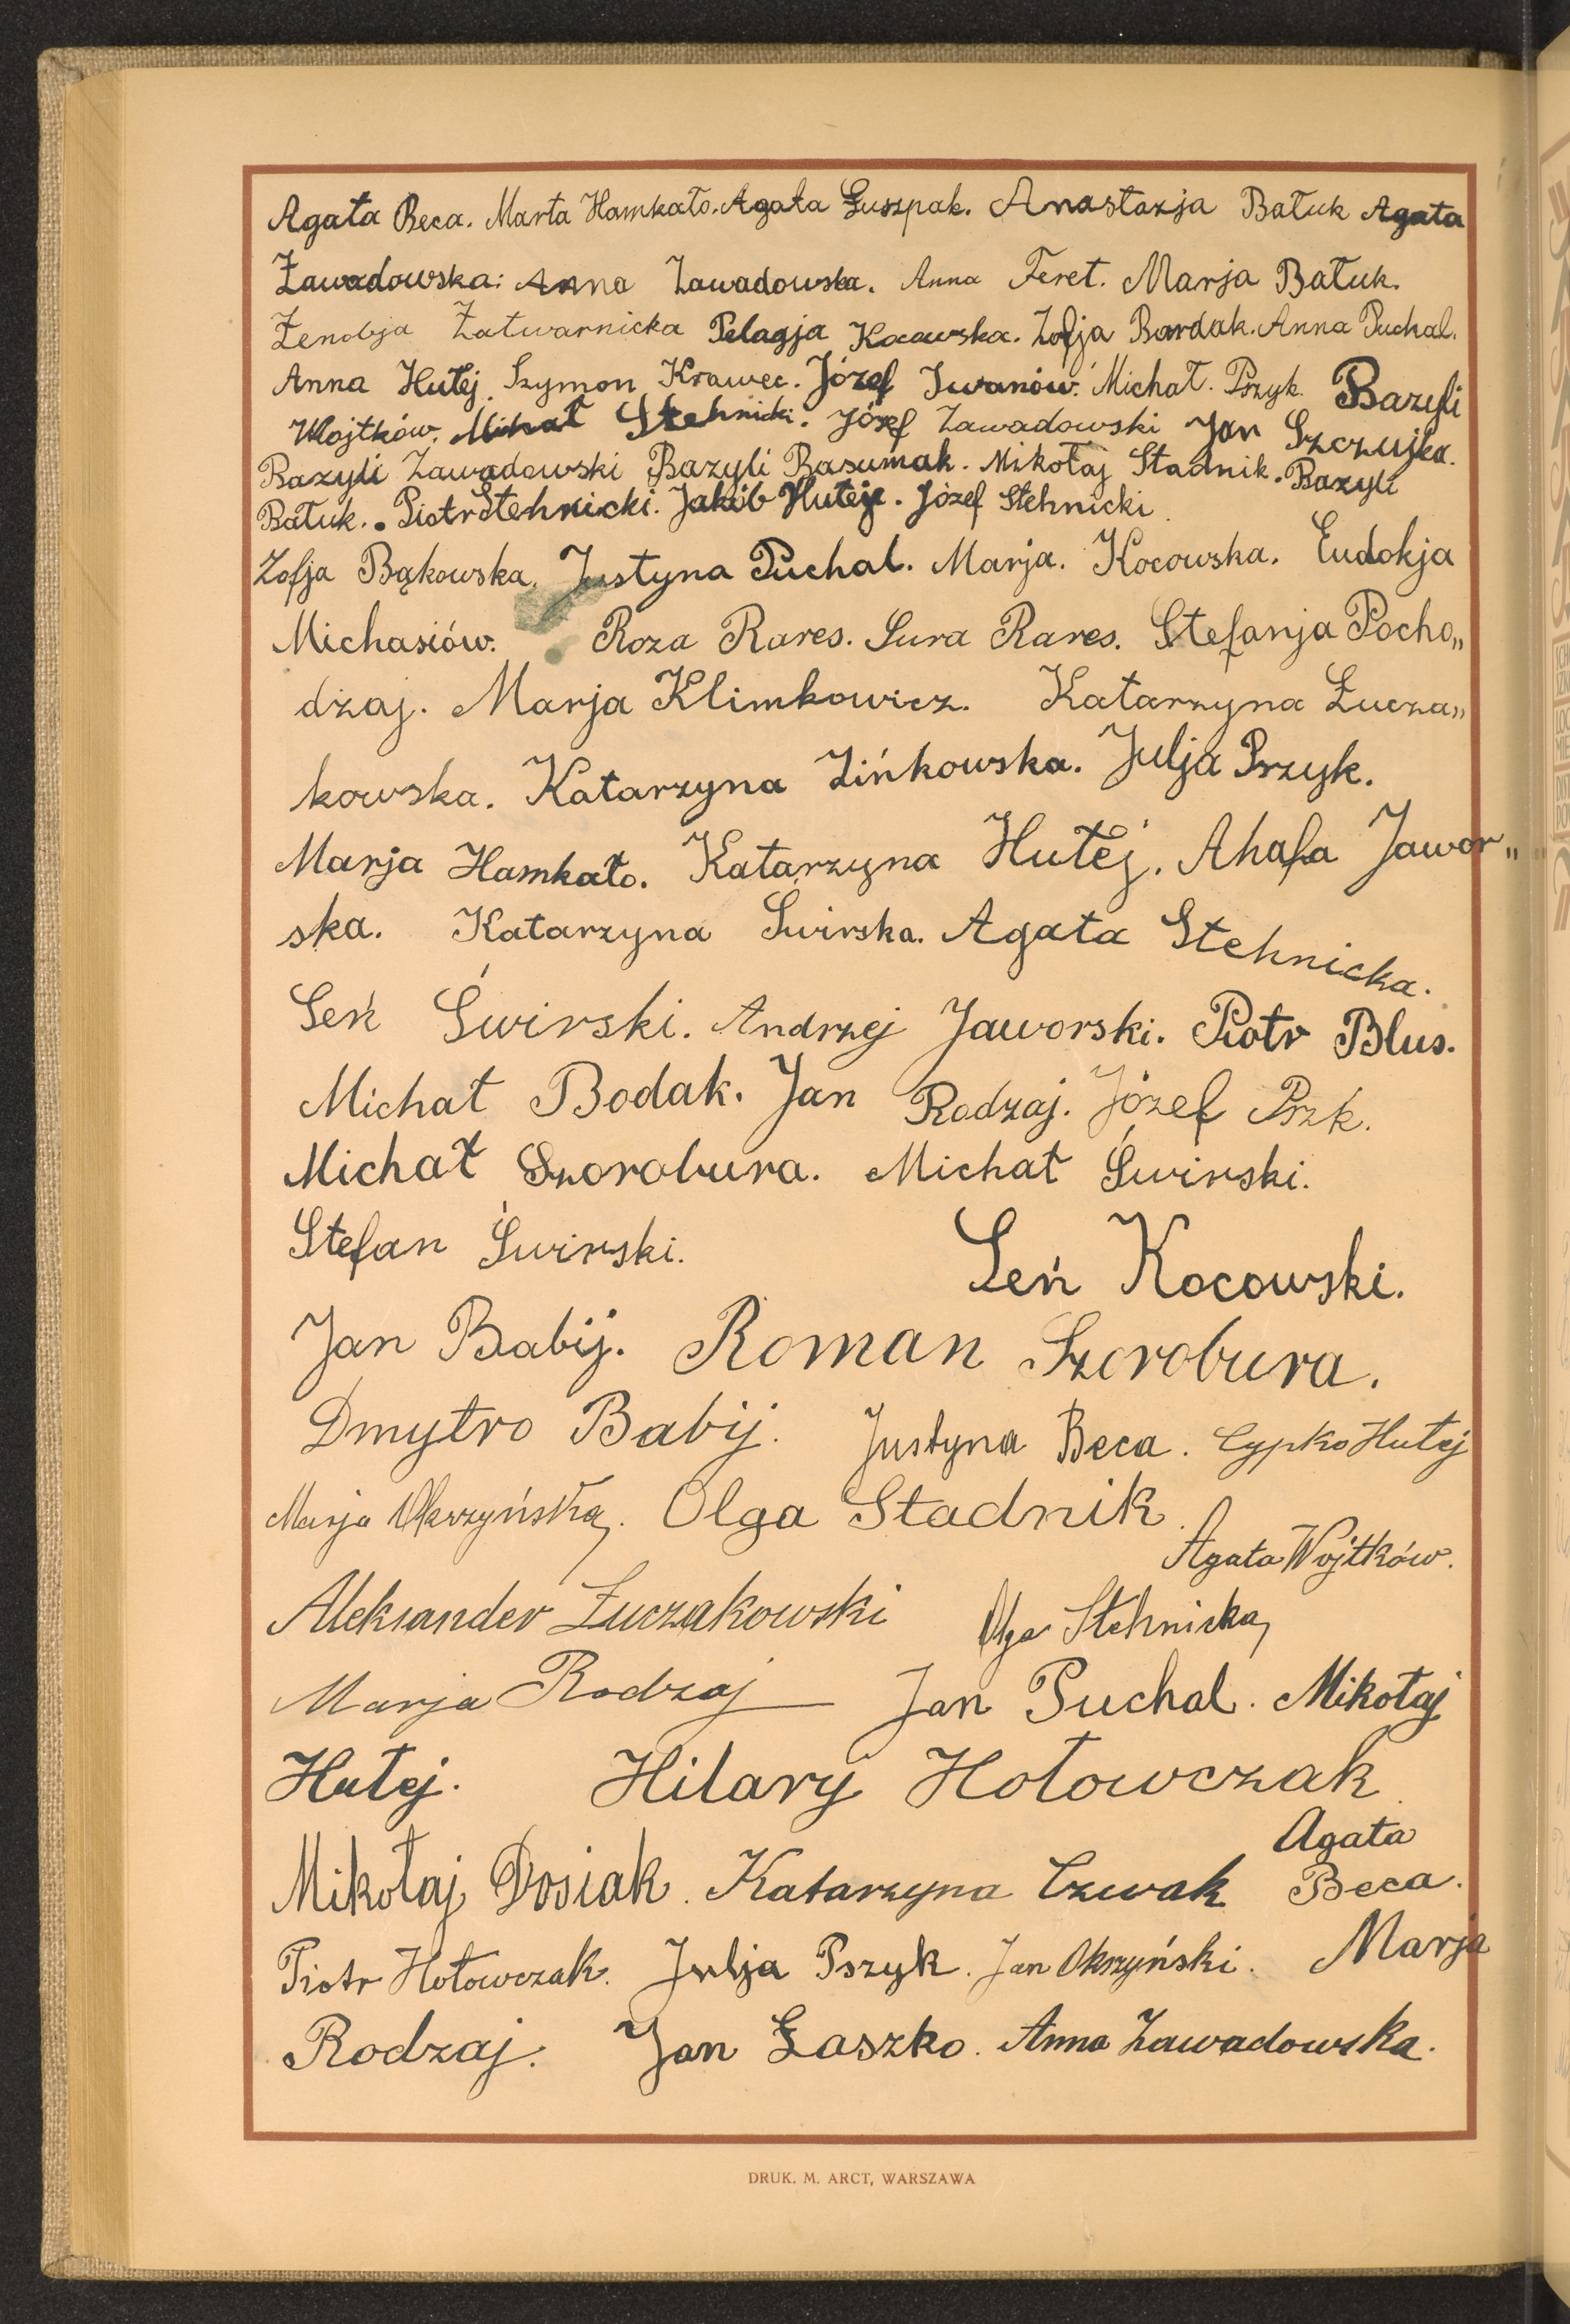 Agata Beca. Marta Hamkało. Agata Łuszpak. Anastazja Batuk Agata
Zawadowska: Anna Zawadowska. Anna Feret. Marja Batuk.
Zenobja Zatwarnicka Pelagja Kocowska. Zofja Bardak. Anna Puchal.
Anna Hutej. Szymon Krawec. Józef Iwanów. Michał. Przyk. Bazyli
Wojtków. Mihał Stehnicki. Józef Zawadowski Jan Szczujka.
Bazyli Zawadowski Bazyli Basumak. Mikołaj Stadnik. Bazyli
Batuk. Piotr Stehnicki. Jakób Hutej. Józef Stehnicki
Zofja Bąkowska. Justyna Puchal. Marja. Kocowska. Eudokja
Michasiów. Roza Rares. Sura Rares. Stefanja Pocho„
dzaj. Marja Klimkowicz. Katarzyna Łucza„
kowska. Katarzyna Zińkowska. Julja Przyk.
Marja Hamkało. Katarzyna Hutej. Ahafa Jawor„
ska. Katarzyna Świrska. Agata Stehnicka.
Seń Świrski. Andrzej Jaworski. Piotr Blus.
Michał Bodak. Jan Rodzaj. Józef Przk.
Michał Szorobura. Michał Świrski.
Stefan Świrski. Seń Kocowski.
Jan Babij. Roman Szorobura.
Dmytro Babij. Justyna Beca. Cypko Hutej
Marja Okrzyńska. Olga Stadnik.
Agata Wojtków.
Aleksander Łuczakowski Olga Stehnicka
Marja Rodzaj Jan Puchal. Mikołaj
Hutej. Hilary Hołowczak
Agata
Mikołaj Dosiak. Katarzyna Czwak Beca.
Piotr Hołowczak. Julja Pszyk. Jan Okrzyński. Marja
Rodzaj. Jan Łaszko. Anna Zawadowska.
DRUK. M. ARCT, WARSZAWA